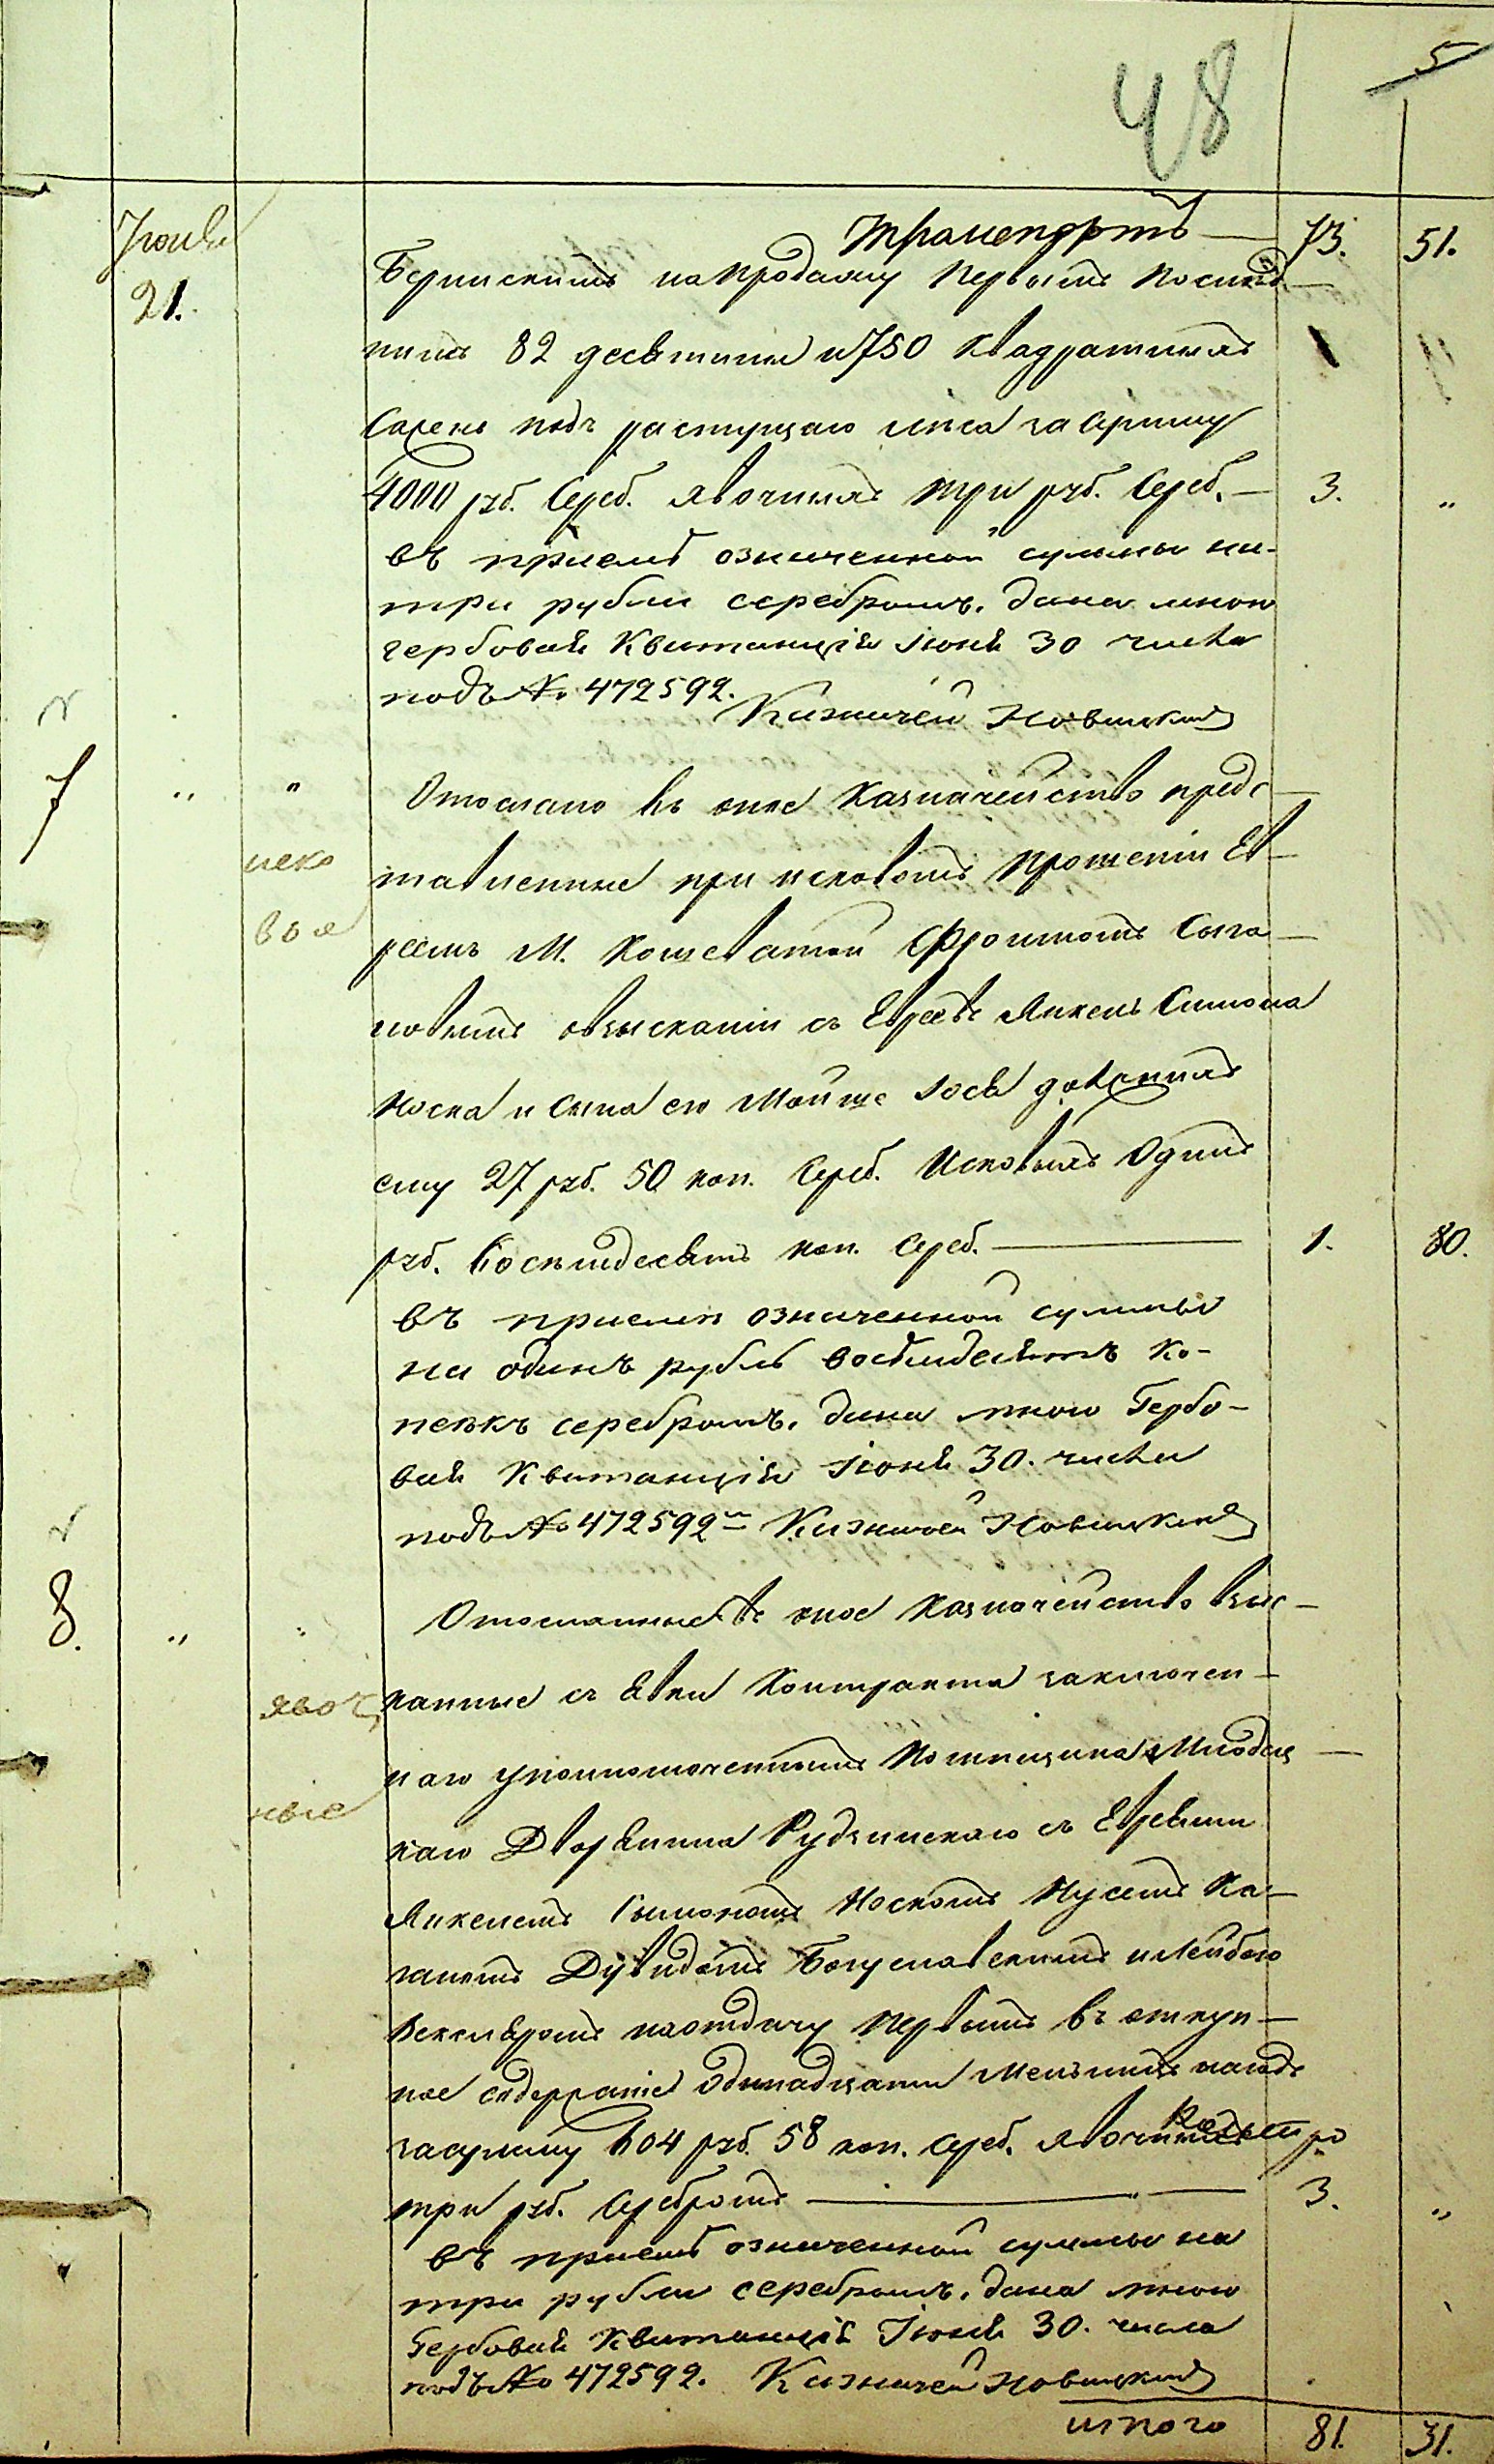 48
5
Транспортъ — 73. 51.
Іюня
21.
на продажу Первымъ
82 десятины и 750 квадратныхъ
Сажень подъ растущаго лѣса за Сумму
4000 руб. Сереб. явочныхъ три руб. Сереб. — 3. „
въ пріемѣ означенной суммы на
три рубли серебромъ. дана мною
гербовая Квитанція Іюня 30 числа
подъ № 472592.
Казначей Новицкій
7 „ „ Отослано въ оное Казначейство предс-
иско
тавленные при исковомъ Прошеніи Ев-
выя
реемъ М. Кошеватой
о взысканіи съ Еврея Янкель Симона
Носка и Сына его Мойше Іося должныхъ
ему 27 руб. 50 коп. Сереб. Исковыхъ Одинъ
руб. Восемдесятъ коп. Сереб. — 1. 80.
въ пріемѣ означенной суммы
на одинъ рубль восѣмдесятъ ко-
пѣекъ серебромъ. дана мною Гербо-
вая Квитанція Іюня 30. числа
подъ № 472592 Казначей Новицкій
8. „ Отосланные въ оное Казначейство взыс-
явоч
канные съ явки Контракта заключен-
ные
наго уполномоченнымъ Помѣщика
каго Дворянина Рудзинскаго съ Евреями
Янкелемъ Симономъ Носкомъ
Дувидомъ Богуславскимъ и Лейбою
на отдачу Первымъ въ откуп-
ное содержаніе Одинадцати Мельницъ на годъ
за сумму 604 руб. 58 коп. Сереб. явочныхъ
три руб. Серебромъ — 3. „
въ пріемѣ означенной суммы на
три рубли серебромъ. дана мною
Гербовая Квитанція Іюня 30. числа
подъ № 472592. Казначей Новицкій
итого 81. 31.